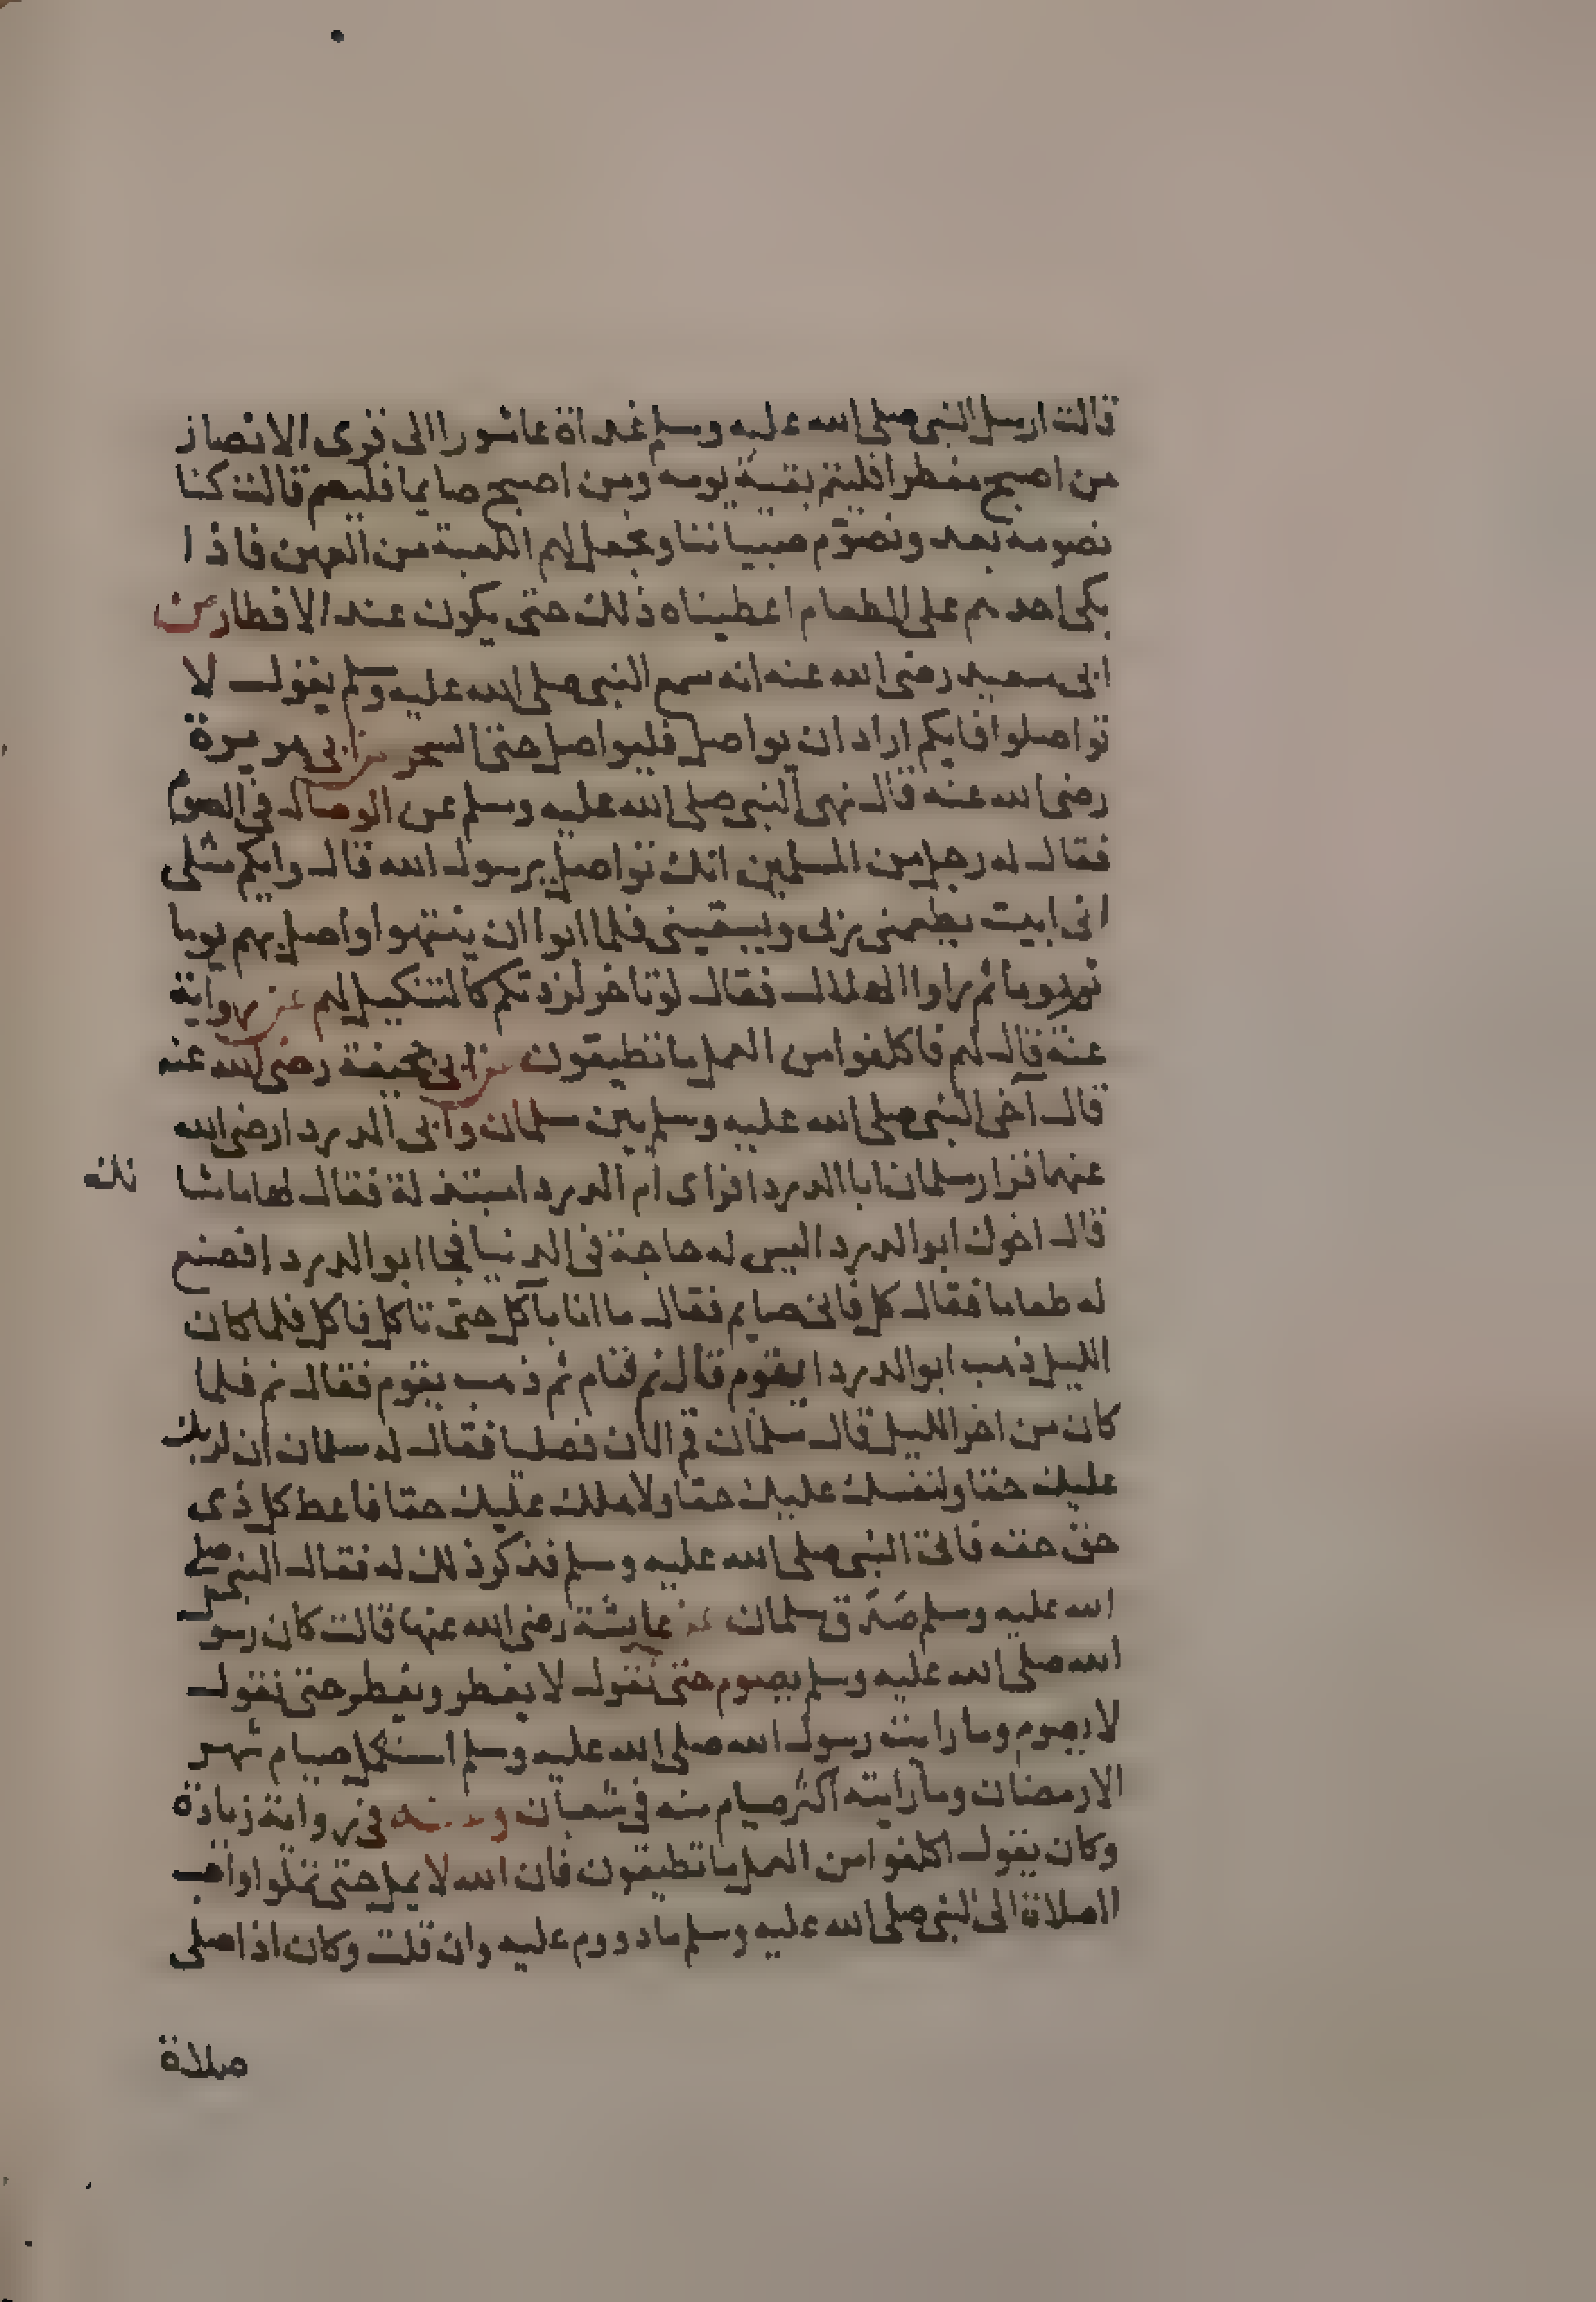 قالت ارسل النبي صلى الله عليه وسلم غداة عاشورا الى قرى الانصار
من اصبح مفطرا فليتم بقية يومه ومن اصبح صايما فليصم قالت كنا
نصومه بعد ونصوم صبياننا ونجعل لهم اللعبة من العهن فاذا
بكى احدهم على الطعام اعطيناه ذلك حتى يكون عند الافطار عن
ابى سعيد رضى الله عنه انه سمع النبى صلى الله عليه وسلم يقول لا
تواصلوا فايكم اراد ان يواصل فليواصل حتى السحر عن ابى هريرة
رضى الله عنه قال نهى النبى صلى الله عليه وسلم عن الوصال فى الصوم
فقال له رجل من المسلمين انك تواصل يرسول الله قال وايكم مثلى
انى ابيت يطعمنى ربى ويسقينى فلما ابوا ان ينتهوا واصل بهم يوما
ثم يوما ثم راوا الهلال فقال لو تاخر لزدتكم كالتنكيل لهم عن رواية
عنه قال لهم فاكلفوا من العمل ما تطيقون عن ابى جحيفة رضى الله عنه
قال آخى النبى صلى الله عليه وسلم بين سلمان وابى الدرردا رضى الله
عنهما فزار سلمان ابا الدردا فراى ام الدردا متبذلة فقال لها ما شانك
قالت اخوك ابو الدردا ليس له حاجة فى الدنيا فجا ابو الدردا فصنع
له طعاما فقال كل فانى صايم فقال ما انا باكل حتى تاكل فاكل فلما كان
الليل ذهب ابو الدردا يقوم قال نم فنام ثم ذهب يقوم فقال نم فلما
كان من اخر الليل قال سلمان قم الان فصليا فقال له سلمان ان لربك
عليك حقا ولنفسك عليك حقا ولاهلك عليك حقا فاعط كل ذى
حق حقه فاتى النبى صلى الله عليه وسلم فذكر ذلك له فقال النبى صلى
الله عليه وسلم صدق سلمان عن عايشة رضى الله عنها قالت كان رسول
الله صلى الله عليه وسلم يصوم حتى نقول لا يفطر ويفطر حتى نقول
لا يصوم وما رايت رسول الله صلى الله عليه وسلم استكمل صيام شهر
الا رمضان وما رايته اكثر صيام منه فى شعبان وعنه فى رواية زيادة
وكان يقول اكلفوا من العمل ما تطيقون فان الله لا يمل حتى تملوا واحب
الصلاة الى النبى صلى الله عليه وسلم ما دووم عليه وان قلت وكان اذا صلى
صلاة